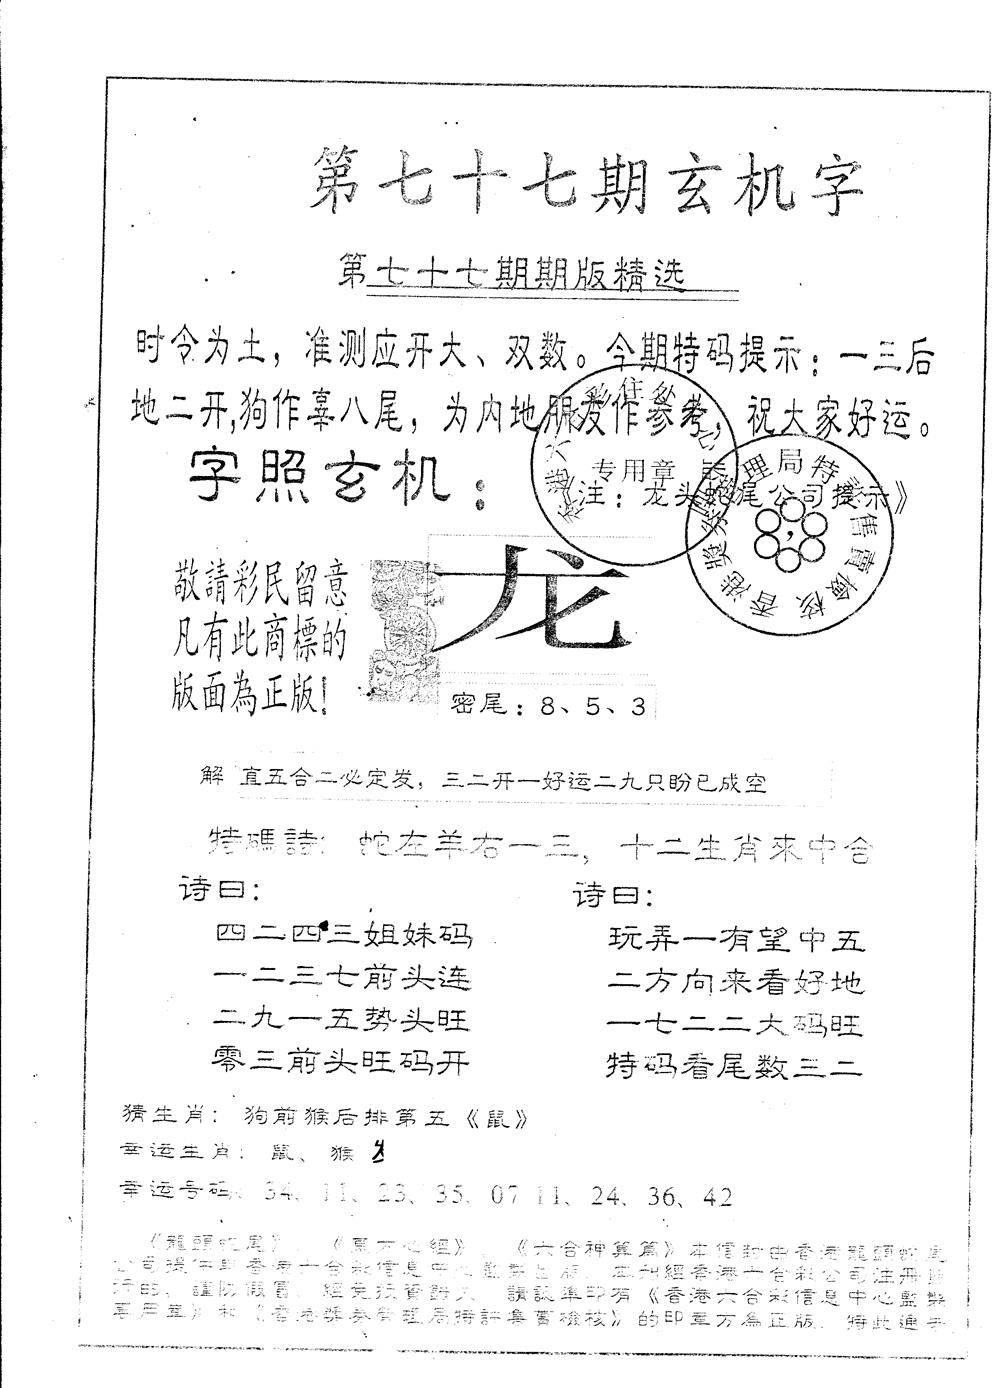 第七十七期玄机字
第七十七期期版精选
时令为土，准测应开大、双数。今期特码提示：一三后
地二开,狗作辜八尾，为内地朋友作参考，祝大家好运。
字照玄机：
注：龙头蛇尾公司提示》
专用章
敬請彩民留意
凡有此商標的
版面為正版！
龙
密尾：8、5、3
解 直五合二必定发，三二开一好运二九只盼已成空
特碼詩：蛇左羊右一三，十二生肖來中合
诗曰：
四二四三姐妹码
一二三七前头连
二九一五势头旺
零三前头旺码开
诗曰：
玩弄一有望中五
二方向来看好地
一七二二大码旺
特码看尾数三二
猜生肖：狗前猴后排第五《鼠》
幸运生肖：鼠、猴
幸运号码：34、11、23、35、07 11、24、36、42
《龍頭蛇尾》、《六合神算篇》本信封由香港龍頭蛇尾
公司提供與香港六合彩信息中心監製出版，本刊經香港六合彩公司注冊
《香港六合彩信息中心監製
專用章》和《香港獎券管理局特許售賣檢核》的印章方為正版，特此通